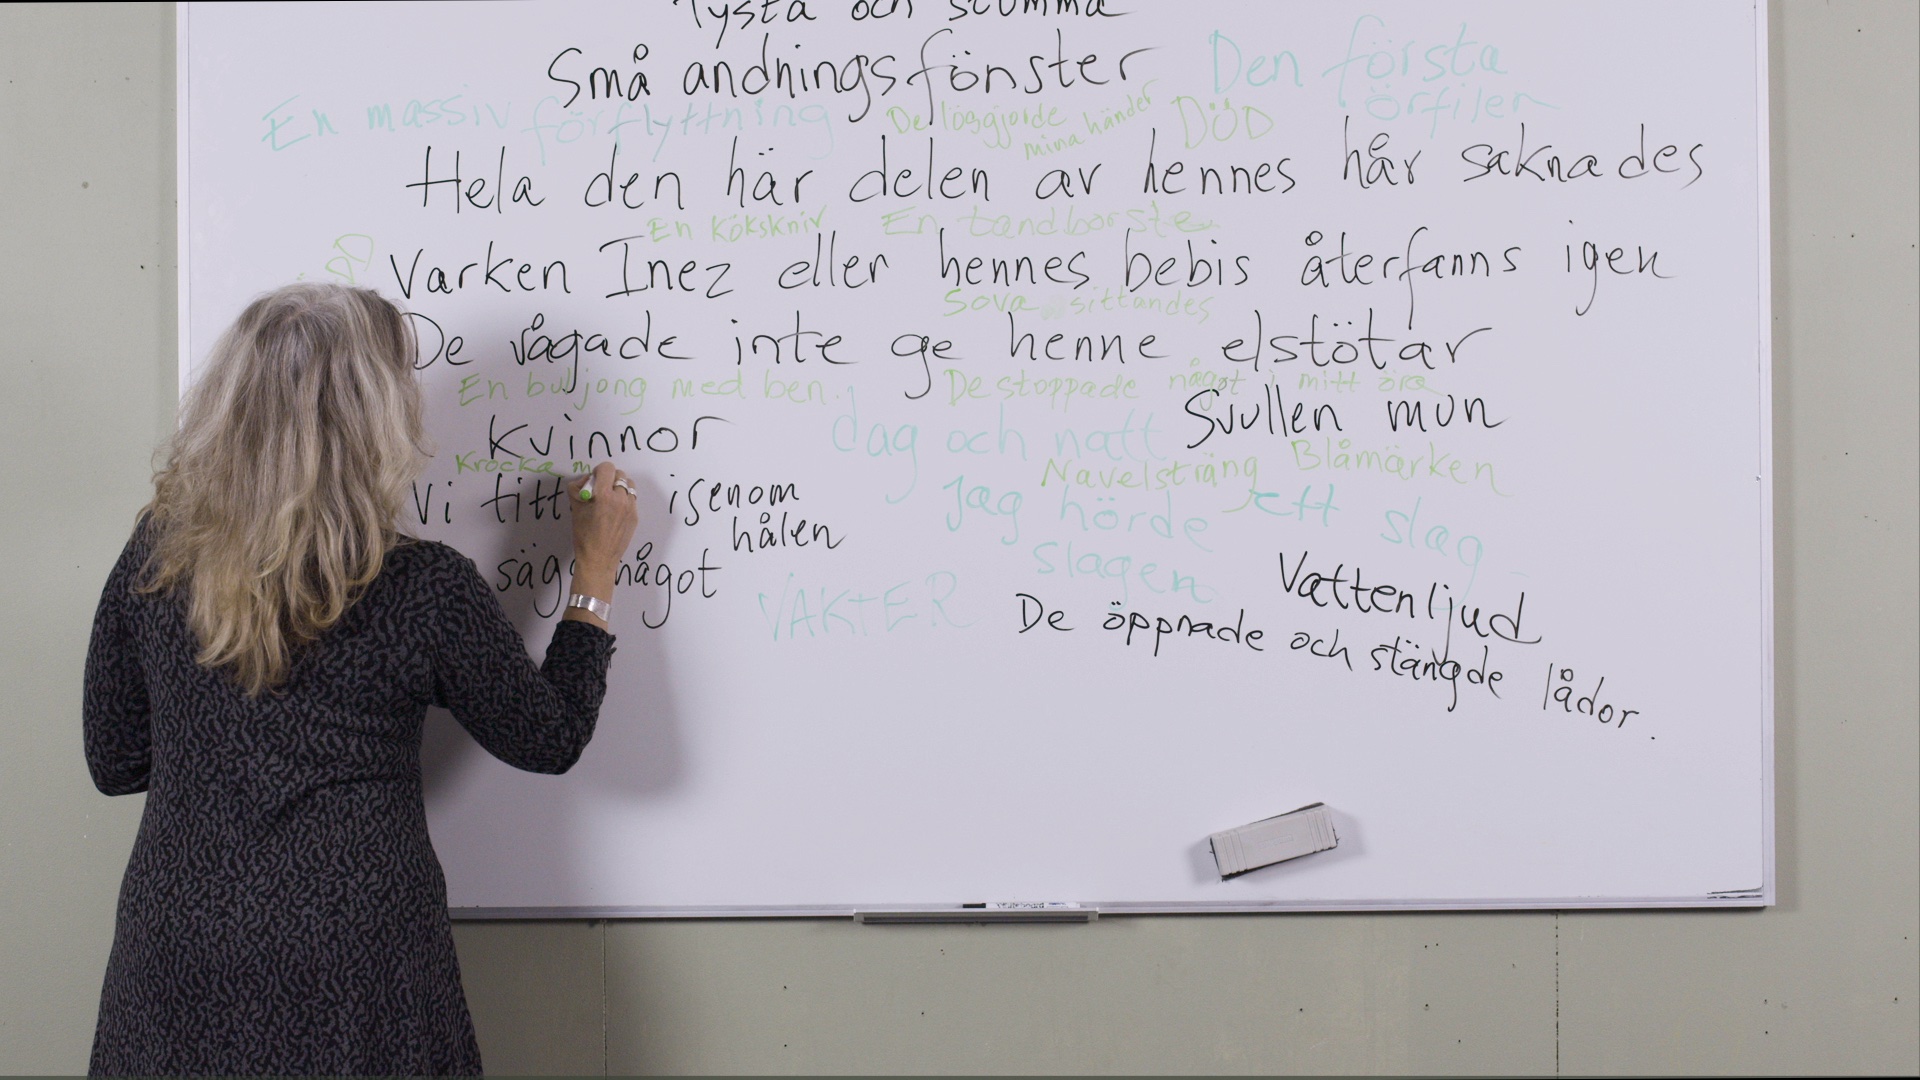 Tysta och stumma
Små andningsfönster
Den första
örfilen
En massiv förflyttning
De lösgjorde
mina händer
DÖD
Hela den här delen av hennes hår saknades
En kökskniv
En tandborste
Varken Inez eller hennes bebis återfanns igen
Sova sittandes
De vågade inte ge henne elstötar
En buljong med ben.
De stoppade något i mitt öra
Svullen mun
kvinnor
dag och natt
Blåmärken
Krocka
Navelsträng
Vi isenom
hålen
Jag hörde ett slag
slagen
något
VAKTER
Vattenljud
De öppnade och stängde lådor.